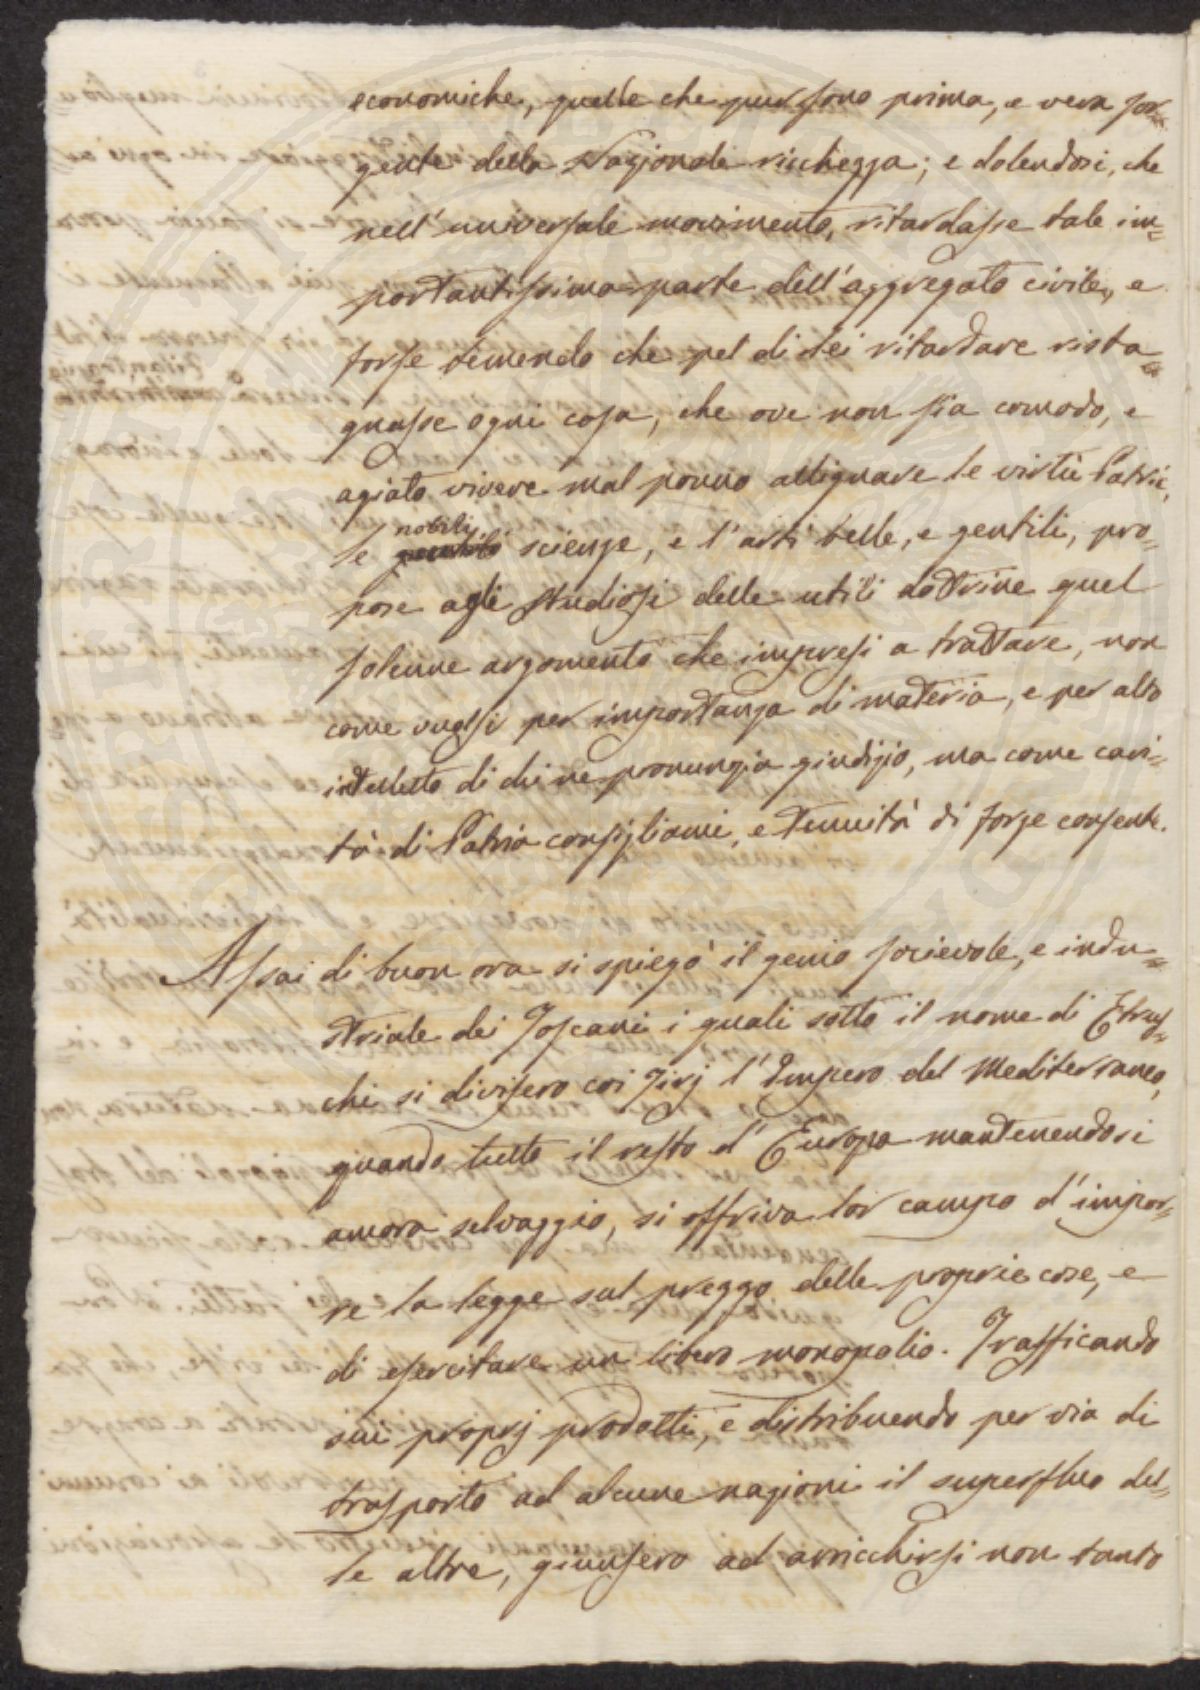 economiche, quelle che pur sono prima, e vera sor=
gente della Nazionale ricchezza; e dolendosi, che
nell'universale movimento, ritardasse tale im=
portantissima parte dell'aggregato civile, e
forse temendo che pel di lei ritardare rista=
gnasse ogni cosa, che ove non sia comodo, e
agiato vivere mal ponno allignare le virtù Patrie,
nobili
le scienze, e l'arti belle, e gentili, pro=
pose agli studiosi delle utili dottrine quel
solenne argomento che impresi a trattare, non
come vuolsi per importanza di materia, e per alto
intelletto di chi ne pronunzia giudizio, ma come cari=
tà di Patria consigliami, e tenuità di forze consente.
Assai di buon ora si spiegò il genio socievole, e indu=
striale dei Toscani i quali sotto il nome di Etrus=
chi si divisero coi Tirj l'Impero del Mediterraneo,
quando tutto il resto d'Europa mantenendosi
ancora selvaggio, si offriva lor campo d'impor=
re la legge sul prezzo delle proprie cose, e
di esercitare un libero monopolio. Trafficando
sui proprj prodotti, e distribuendo per via di
trasporto ad alcune nazioni il superfluo del=
le altre, giunsero ad arricchirsi non tanto